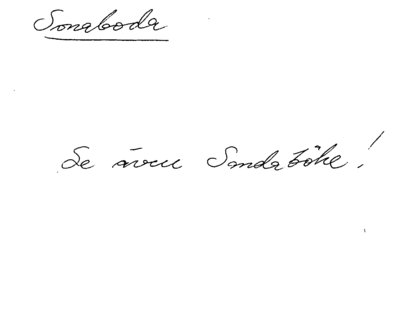 Sonaboda
Se även Sandaböke!